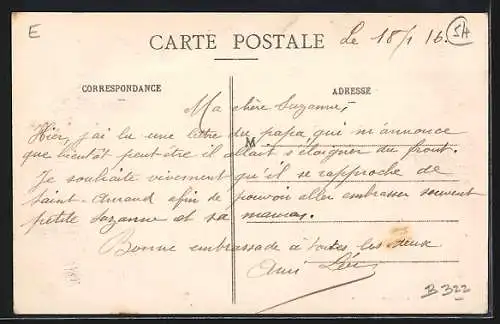 E
CARTE POSTALE
Le 18/1 16.
SH
CORRESPONDANCE
ADRESSE
Ma chère Suzanne,
Hier, j'ai lu une lettre du papa, qui m'annonce
M
que bientôt peut-être il allait s'éloigner du front.
Je souhaite vivement qu'il se rapproche de
Saint-Amand afin de pouvoir aller embrasser souvent
petite Suzanne et sa maman.
Bonne embrassade à toutes les deux
Ami
B 322